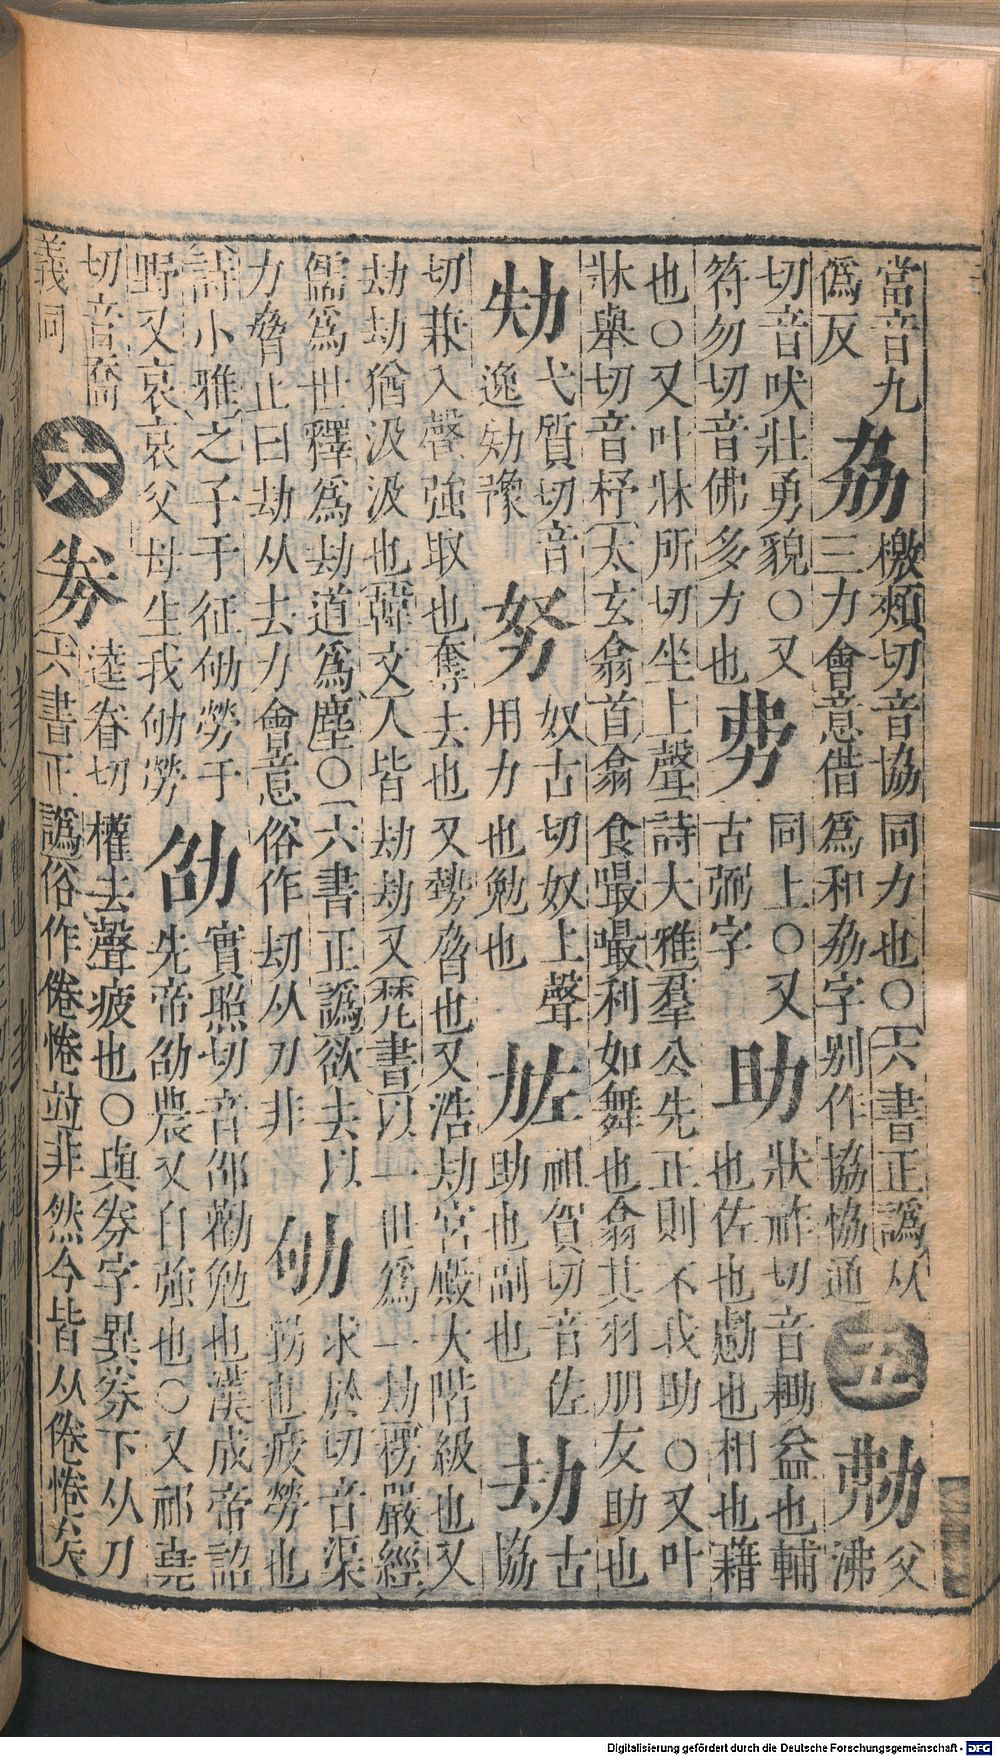 當音九
爲反
劦
檄頰切音協同力也○〔六書正譌〕从
三力會意借爲和劦字别作協恊通
五
㔗
父
沸
切音吠壯勇貌○又
符勿切音佛多力也
同上○又
古弼字
助
狀祚切音耡益也輔
也佐也勴也相也藉
也○又叶牀所切坐上聲〔詩大雅〕羣公先正則不我助○又叶
牀舉切音杼〔太玄翕首〕翕食嘬嘬利如舞也翕其羽朋友助也
劮
弋質切音
逸劮豫
努
奴古切奴上聲
用力也勉也
㔫
祖賀切音佐
助也副也
劫
古
協
切兼入聲強取也奪去也又勢脅也又浩劫宮殿大階級也又
劫劫猶汲汲也〔韓文〕人皆劫劫又〔梵書〕以一世爲一劫〔楞嚴經〕
儒爲世釋爲劫道爲塵○〔六書正譌〕欲去以
力脅止曰劫从去力會意俗作刧从刀非
劬
求於切音渠
勞也疲勞也
〔詩小雅〕之子于征劬勞于
野又哀哀父母生我劬勞
劭
實照切音邵勸勉也漢成帝詔
先帝劭農又自強也○又祁堯
切音喬
義同
六
劵
逵眷切權去聲疲也○與券字異券下从刀
〔六書正譌〕俗作倦惓竝非然今皆从倦惓矣
Digitalisierung gefördert durch die Deutsche Forschungsgemeinschaft - DFG